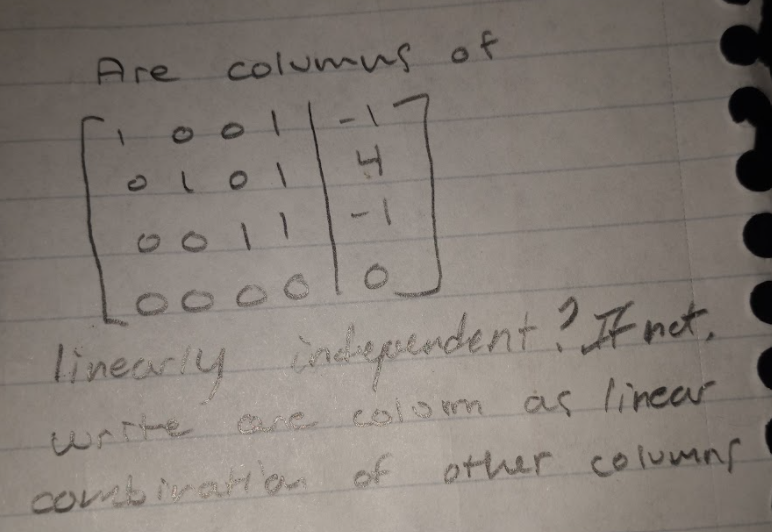 Are columns of
1 0 0 1 | -1
0 1 0 1 | 4
0 0 1 1 | -1
0 0 0 0 | 0
linearly independent? If not,
write one colomn as linear
combination of other columns